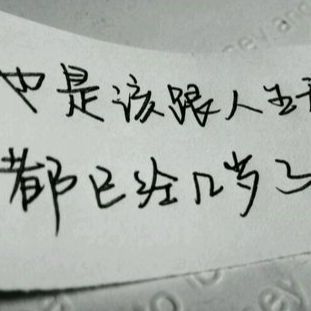 也是该跟人
都已经几岁了